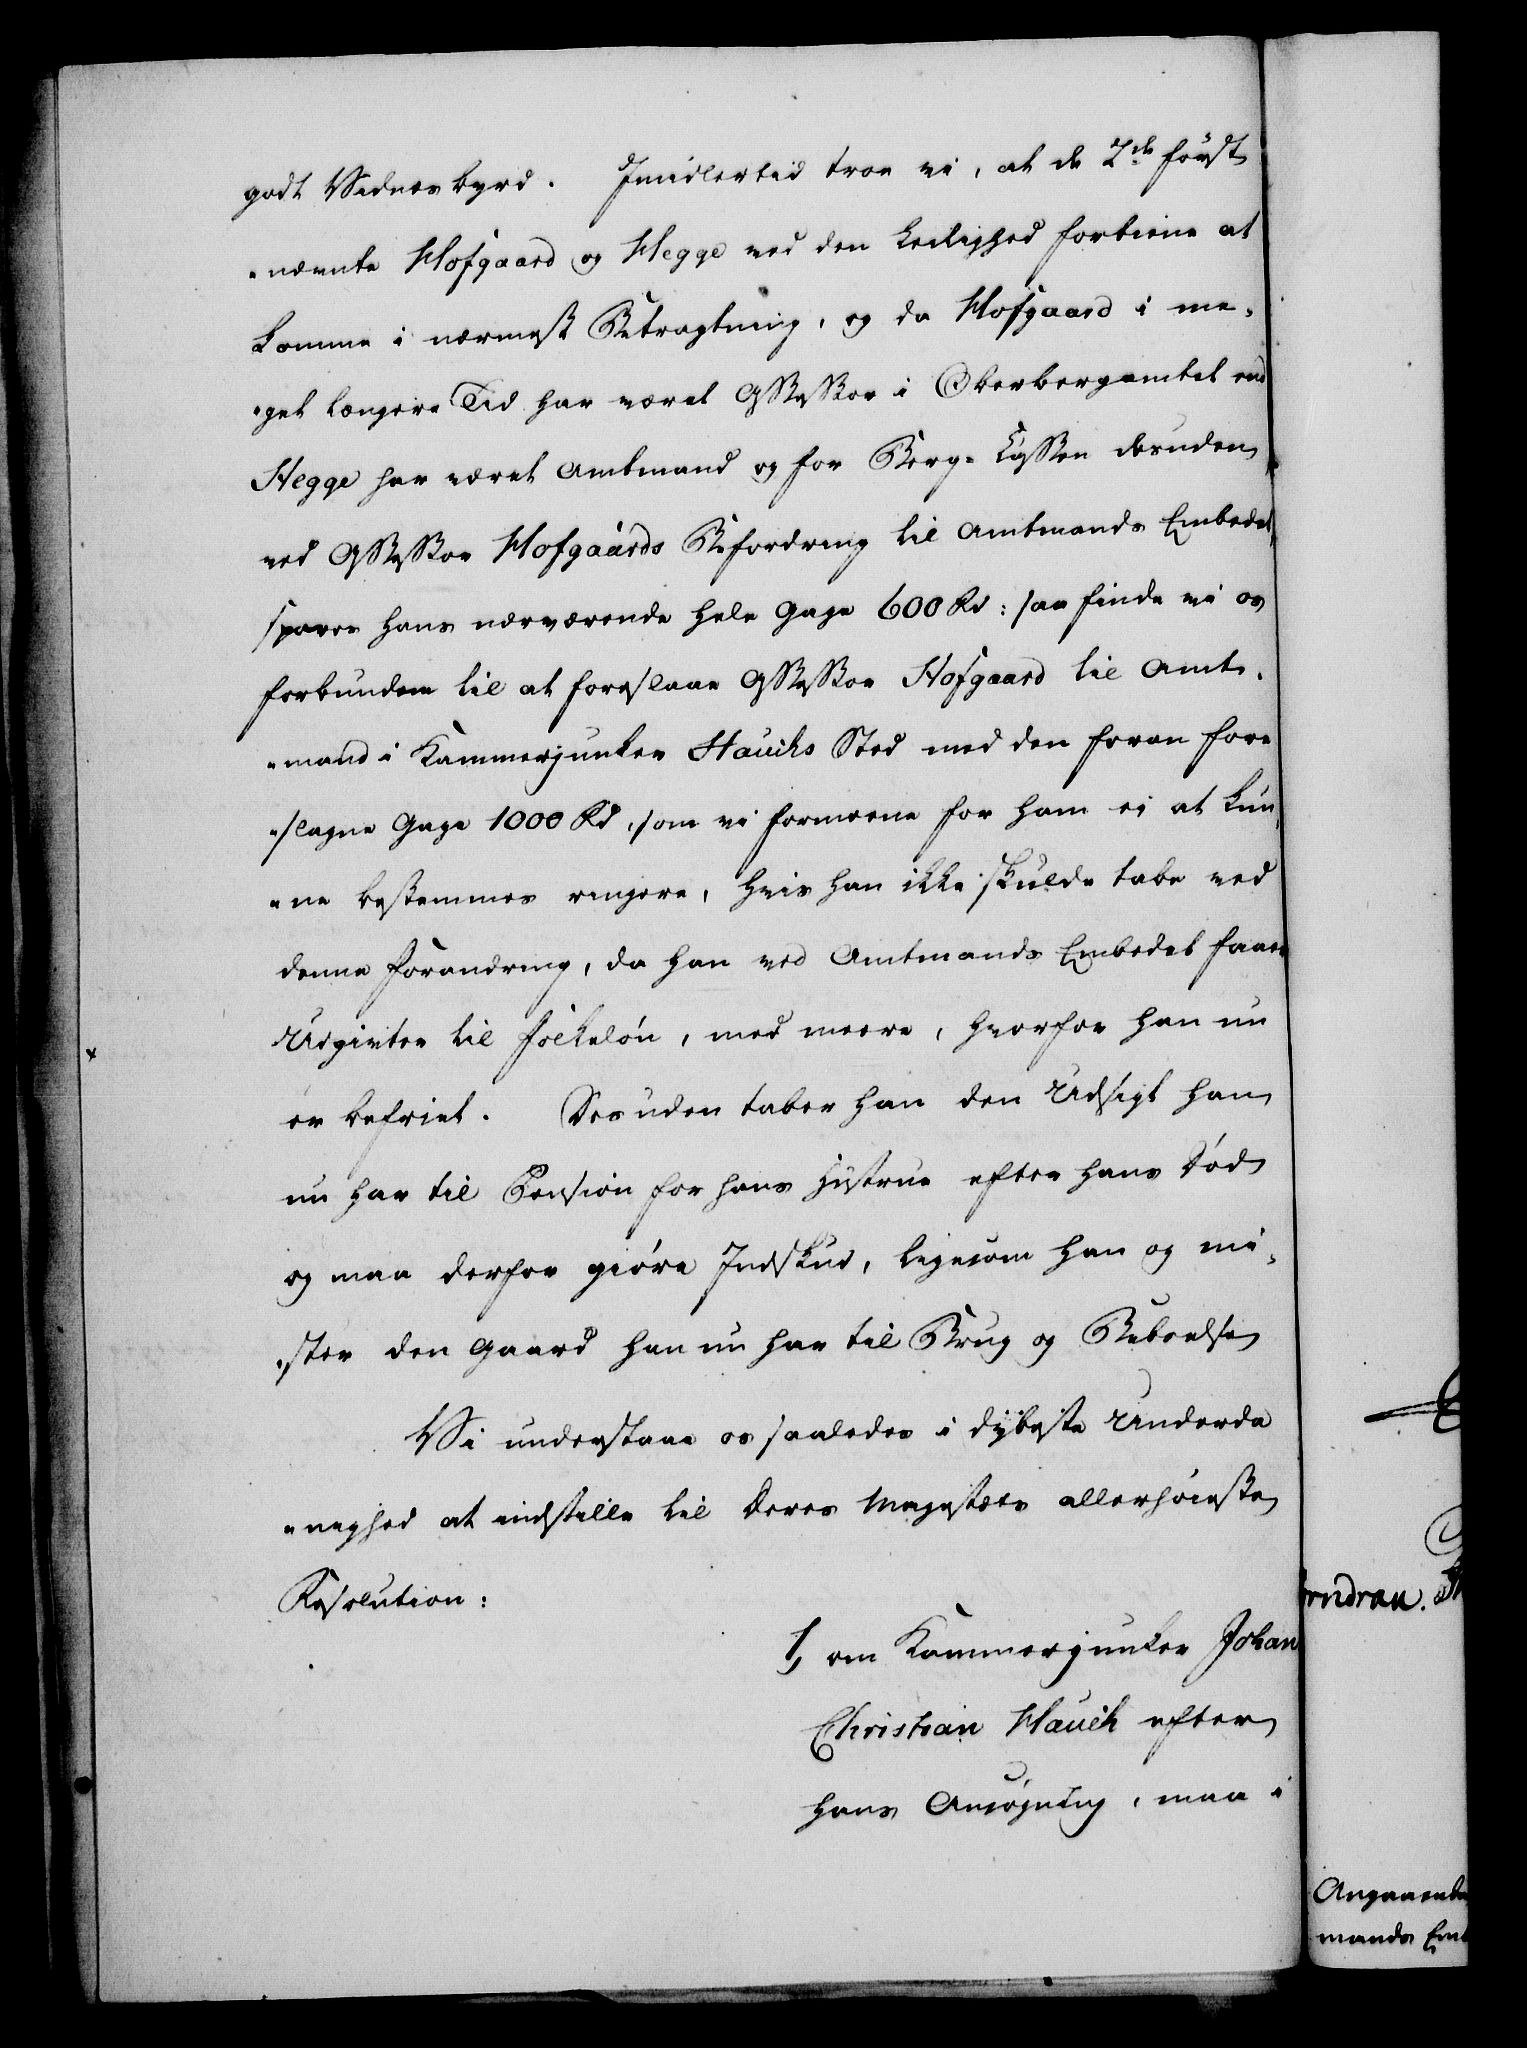 godt Vidnesbyrd. Imidlertid troe vi, at de 2de først
"nævnte Hofgaard og Hegge ved den Leilighed fortiene at
komme i nærmest Betragtning, og da Hofgaard i me"
"get længere Tid har været Assessor i Oberbergamtet end
Hegge har været Amtmand og for Berg-Cassen desuden
ved Assessor Hofgaards Befordring til Amtmands Embedet
sparer hans nærværende hele Gage 600 Rd: saa finde vi os
forbunden til at foreslaae Assessor Hofgaard til Amt"
"mand i Kammerjunker Hauchs Sted med den foran fore
"slagne Gage 1000 Rd, som vi formeene for ham ei at kun"
"ne bestemmes ringere, hvis han ikke skulde tabe ved
denne Forandring, da han ved Amtmands Embedet faaer
Udgivter til Folkeløn, med meere, hvorfor han nu
er befriet. Desuden taber han den Udsigt han
nu har til Pension for hans Hustrue efter hans Død
og maa derfor giøre Indskud, ligesom han og mi"
"ster den Gaard han nu har til Brug og Beboelse
Vi understaae os saaledes i dybeste Underda
"nighed at indstille til Deres Majestæts allerhøieste
Resolution:
1, om Kammerjunker Johan
Christian Hauch efter
hans Ansøgning, maa i
Angaaende
mands Emb